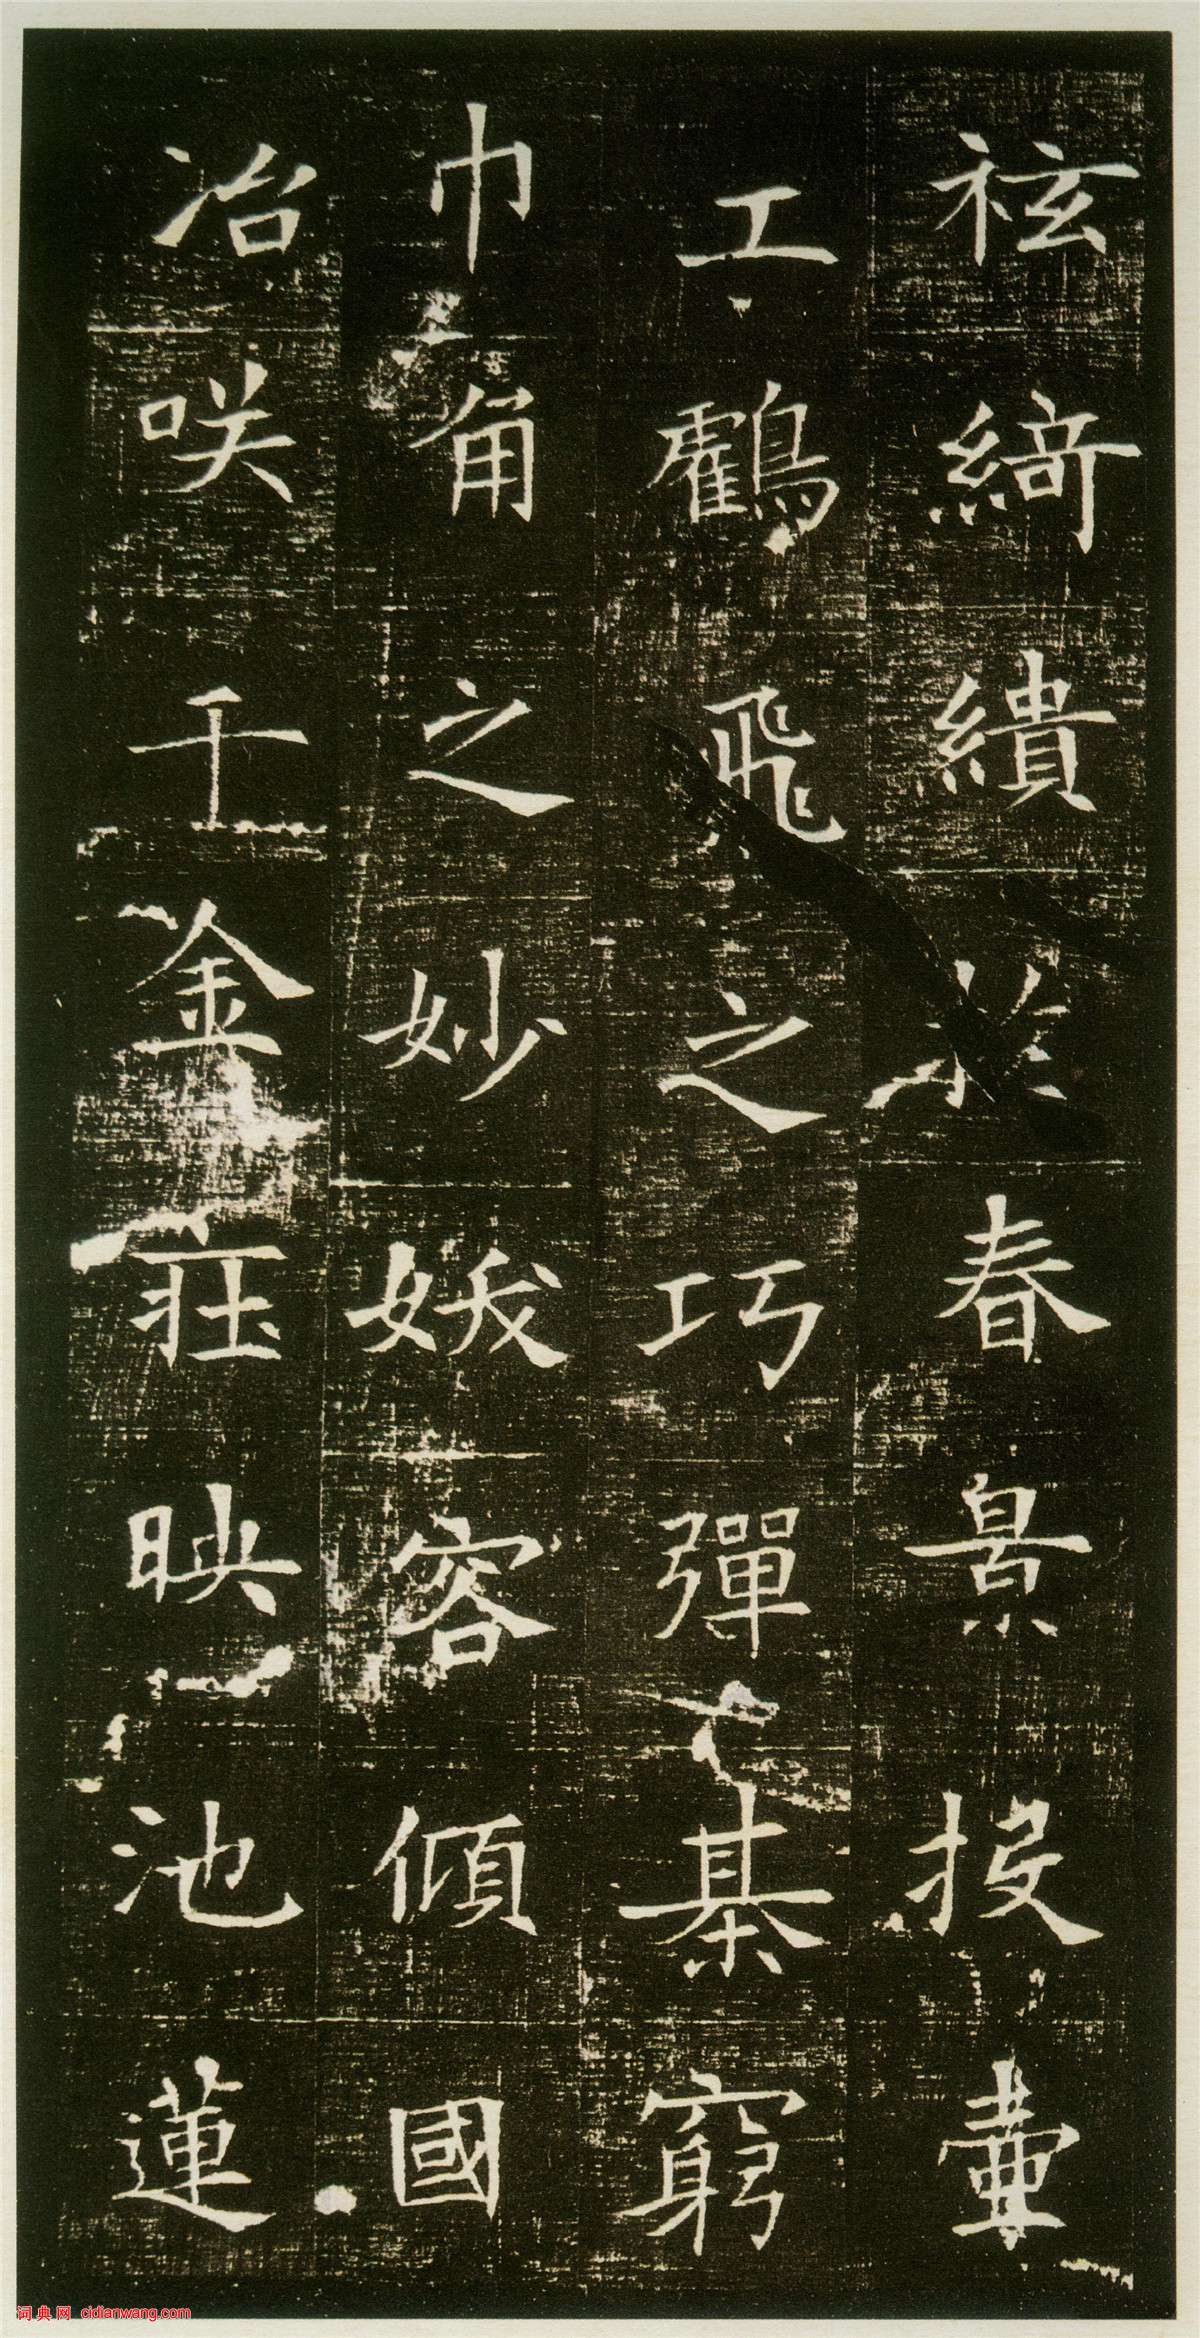 袨綺繢春景投壺
工鸖飛之巧彈棊窮
巾角之妙妖容傾國
冶咲千金莊映池蓮
词典网 cidianwang.com